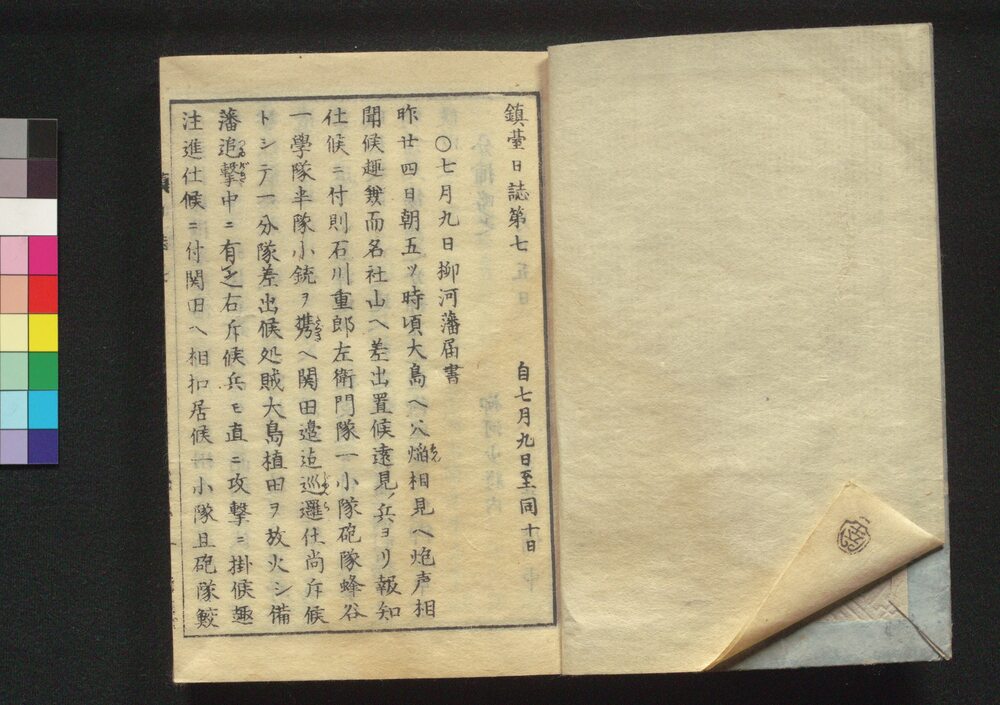 鎮臺日誌第七 自七月九日至同十日
〇七月九日柳河藩届書
昨廿四日朝五ツ時頃大島ヘハ焔相見ヘ炮声相
聞候趣兼而名社山ヘ差出置候遠見ノ兵ヨリ報知
仕候ニ付則石川重郎左衛門隊一小隊砲隊蜂谷
一學隊半隊小銃ヲ携ヘ関田邉迠巡邏仕尚斥候
トシテ一分隊差出候処賊大島植田ヲ放火シ備
藩追撃中ニ有之右斥候兵モ直ニ攻撃ニ掛候趣
注進仕候ニ付関田ヘ相扣居候一小隊且砲隊鮫